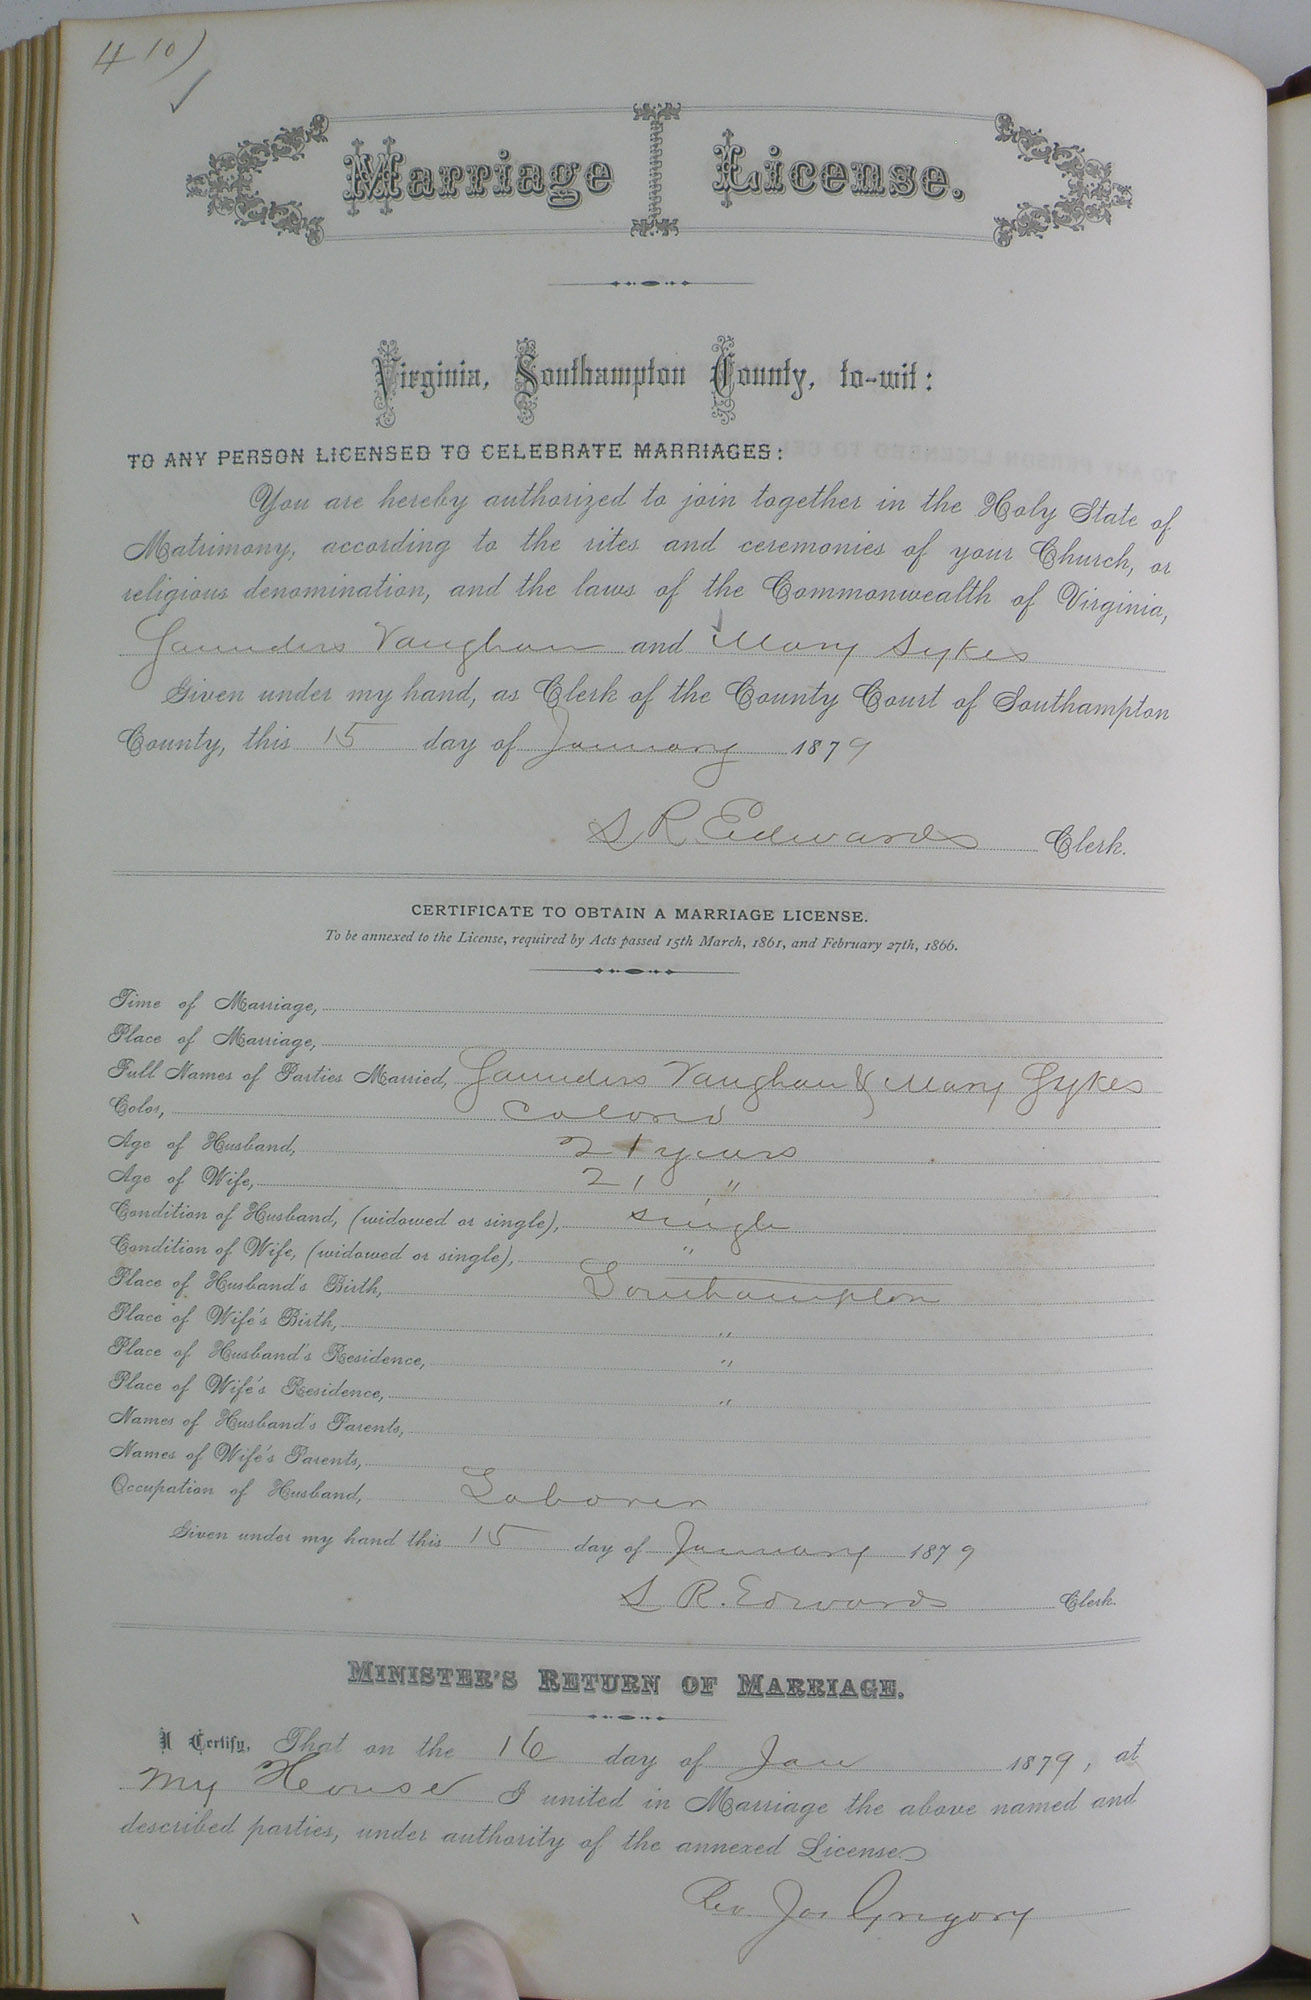 410)
Marriage License.
Virginia, Southampton County, to-wit:
TO ANY PERSON LICENSED TO CELEBRATE MARRIAGES:
You are hereby authorized to join together in the Holy State of
Matrimony, according to the rites and ceremonies of your Church, or
religious denomination, and the laws of the Commonwealth of Virginia,
Saunders Vaughan and Mary Sykes
Given under my hand, as Clerk of the County Court of Southampton
County, this 15 day of January 1879
S R. Edwards Clerk.
CERTIFICATE TO OBTAIN A MARRIAGE LICENSE.
To be annexed to the License, required by Acts passed 15th March, 1861, and February 27th, 1866.
Time of Marriage,
Place of Marriage,
Full Names of Parties Married, Saunders Vaughan & Mary Sykes
Color, Colored
Age of Husband, 21 years
Age of Wife, 21 "
Condition of Husband, (widowed or single), single
Condition of Wife, (widowed or single), "
Place of Husband's Birth, Southampton
Place of Wife's Birth, "
Place of Husband's Residence, "
Place of Wife's Residence, "
Names of Husband's Parents,
Names of Wife's Parents,
Occupation of Husband, Laborer
Given under my hand this 15 day of January 1879
S R. Edwards Clerk.
MINISTER'S RETURN OF MARRIAGE.
I Certify, That on the 16 day of Jan 1879, at
my House I united in Marriage the above named and
described parties, under authority of the annexed License
Rev. Jos Gregory